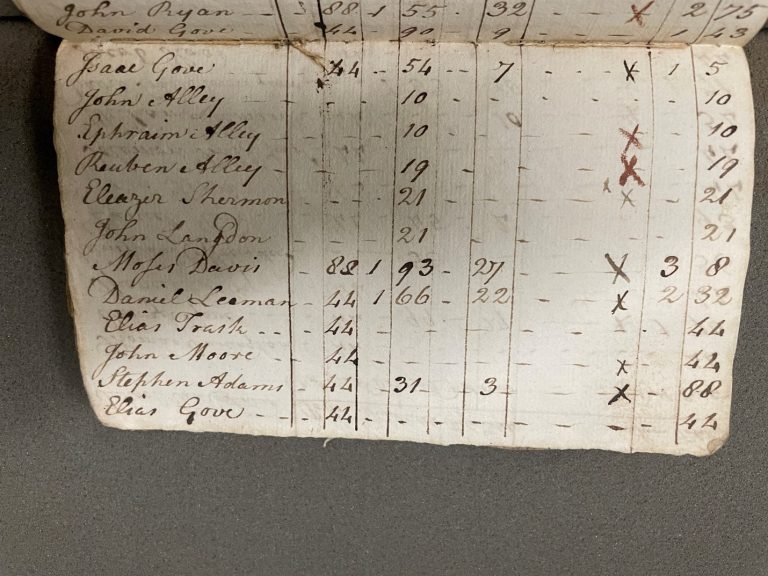 John Ryan - - 88 1 55 - 32 x 2 75
David Gove - 44 - 90 - 9 - 1 43
Isaac Gove - - 44 - 54 - - 7 - - x 1 5
John Alley - - - - 10 - - - - - - 10
Ephraim Alley - - - 10 - - - - x - 10
Reuben Alley - - - - 19 - - - - x 19
Eleazer Shermon 21 - - - - x - 21
John Langdon - - - 21 - - - - - 21
Moses Davis - 88 1 93 - 27 - - x 3 8
Daniel Leeman - 44 1 66 - - 22 - - x 2 32
Elias Trask - - - 44 - - - - - - - - 44
John Moore - - - 44 - - - - - - x - 44
Stephen Adams - 44 - 31 - 3 - - x - 88
Elias Gove - - - 44 - - - - - - - - 44